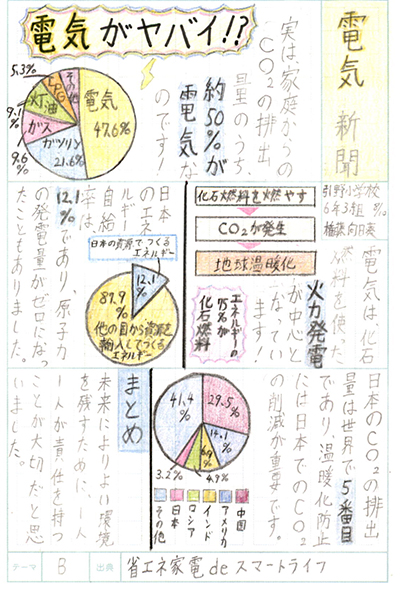 電気新聞
引野小学校
6年3組
電気がヤバイ!?
実は、家庭からの
CO₂の排出
量のうち、
約50%が
電気な
のです!
電気
47.6%
ガソリン
21.6%
ガス
9.6%
灯油
9.1%
LPG
5.3%
その他
化石燃料を燃やす
CO₂が発生
地球温暖化
電気は化石
燃料を使った
火力発電
が中心と
なってい
ます!
エネルギーの
95%が
化石燃料
日本のエネ
ルギー
自給
率は、
12.1
%であり、原子力
の発電量がゼロになっ
たこともありました。
日本の資源でつくる
エネルギー
12.1
%
87.9
%
他の国から資源を
輸入してつくる
エネルギー
日本のCO₂の排出
量は世界で5番目
であり、温暖化防止
には日本でのCO₂
の削減が重要です。
29.5
%
14.1
%
6.9
%
4.9%
3.2%
41.4
%
中国
アメリカ
インド
ロシア
日本
その他
まとめ
未来によりよい環境
を残すために、一人
一人が責任を持つ
ことが大切だと思
いました。
テーマ B 出典 省エネ家電deスマートライフ